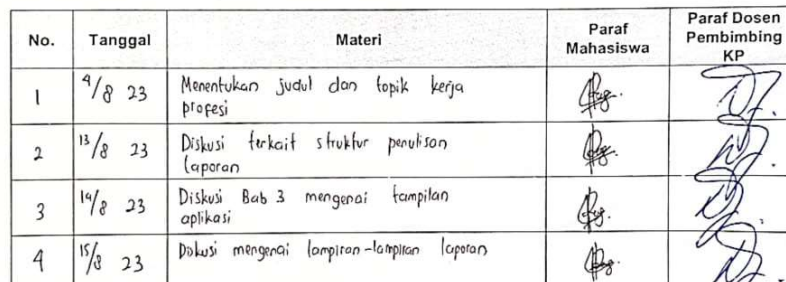 No. Tanggal Materi Paraf Mahasiswa Paraf Dosen Pembimbing KP
1 4/8 23 Menentukan judul dan topik kerja
profesi
2 13/8 23 Diskusi terkait struktur penulisan
laporan
3 14/8 23 Diskusi Bab 3 mengenai tampilan
aplikasi
4 15/8 23 Diskusi mengenai lampiran-lampiran laporan